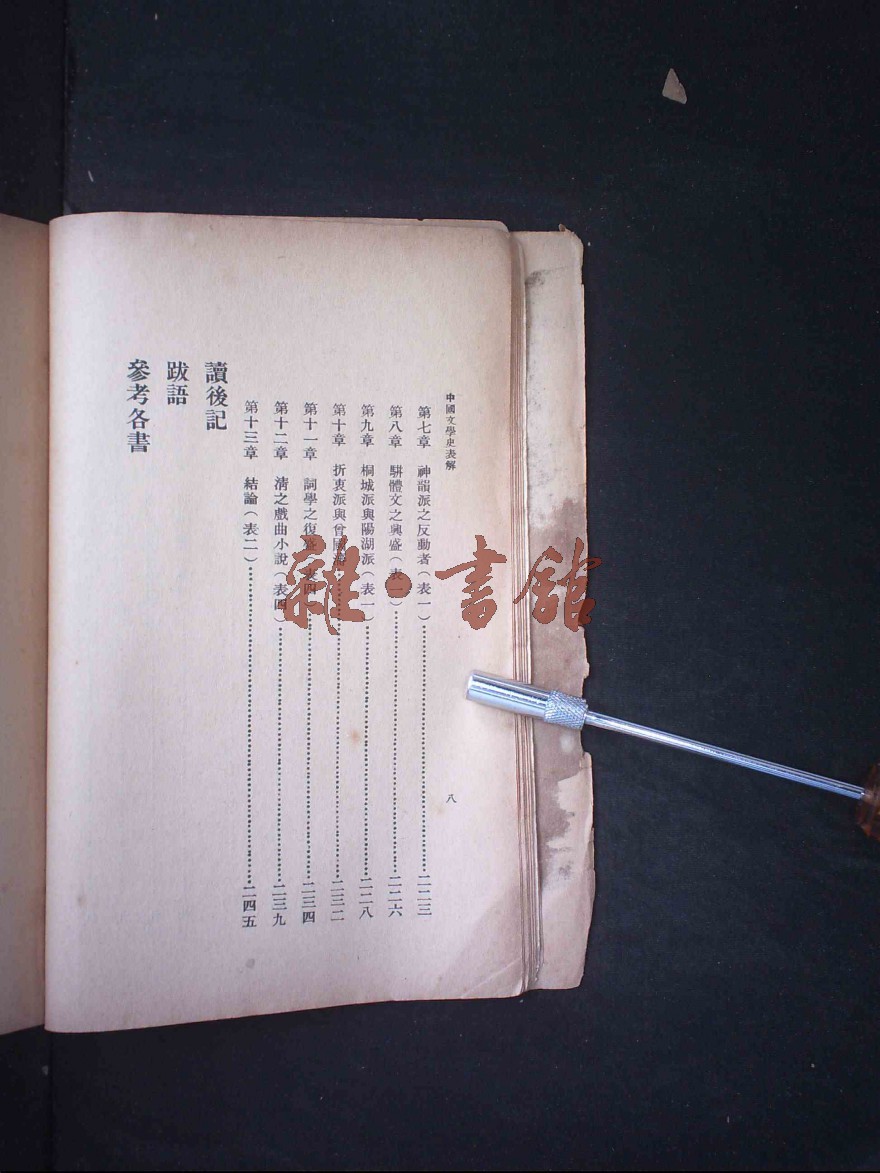 中國文學史表解
八
第七章 神韻派之反動者(表一)……二二三
第八章 駢體文之興盛(表一)……二二六
第九章 桐城派與陽湖派(表一)……二二八
第十章 折衷派與曾國藩……二三二
第十一章 詞學之復盛(表四)……二三四
第十二章 清之戲曲小說(表四)……二三九
第十三章 結論(表二)……二四五
讀後記
跋語
參考各書
雜·書館